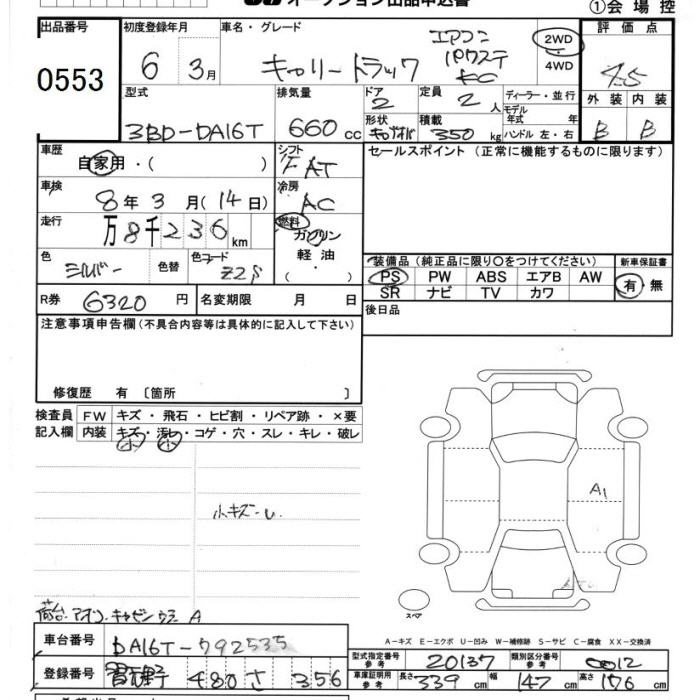 オークション出品申込書
①会場控
出品番号
0553
初度登録年月
6 3月
車名・グレード
キャリートラック
エアコン
パワステ
KC
2WD
4WD
評価点
4.5
外装 内装
B B
型式
3BD-DA16T
排気量
660cc
ドア
2
形状
定員
2人
積載
350kg
ディーラー・並行
モデル
年式 年
ハンドル 左・右
車歴
自家用・( )
シフト
FAT
セールスポイント(正常に機能するものに限ります)
車検
8年3月(14日)
冷房
AC
走行
万8千236km
燃料
ガソリン
軽油
( ・ )
色
シルバー
色替
色コード
Z2S
装備品(純正品に限り〇をつけてください)
PS PW ABS エアB AW
SR ナビ TV カワ
新車保証書
有・無
R券 6320円
名変期限 月 日
後日品
注意事項申告欄(不具合内容等は具体的に記入して下さい)
修復歴 有 〔箇所 〕
検査員 FW キズ・飛石・ヒビ割・リペア跡・×要
記入欄 内装 キズ・汚れ・コゲ・穴・スレ・キレ・破レ
小 小
小キズ-U
A1
スペア
荷台.アオリ.キャビンウラ A
A-キズ E-エクボ U-凹み W-補修跡 S-サビ C-腐食 XX-交換済
車台番号 DA16T-792535
登録番号 480 さ 356
型式指定番号
参考
20137
類別区分番号
参考
0012
車庫証明用
参考
長さ339cm 幅147cm 高さ176cm